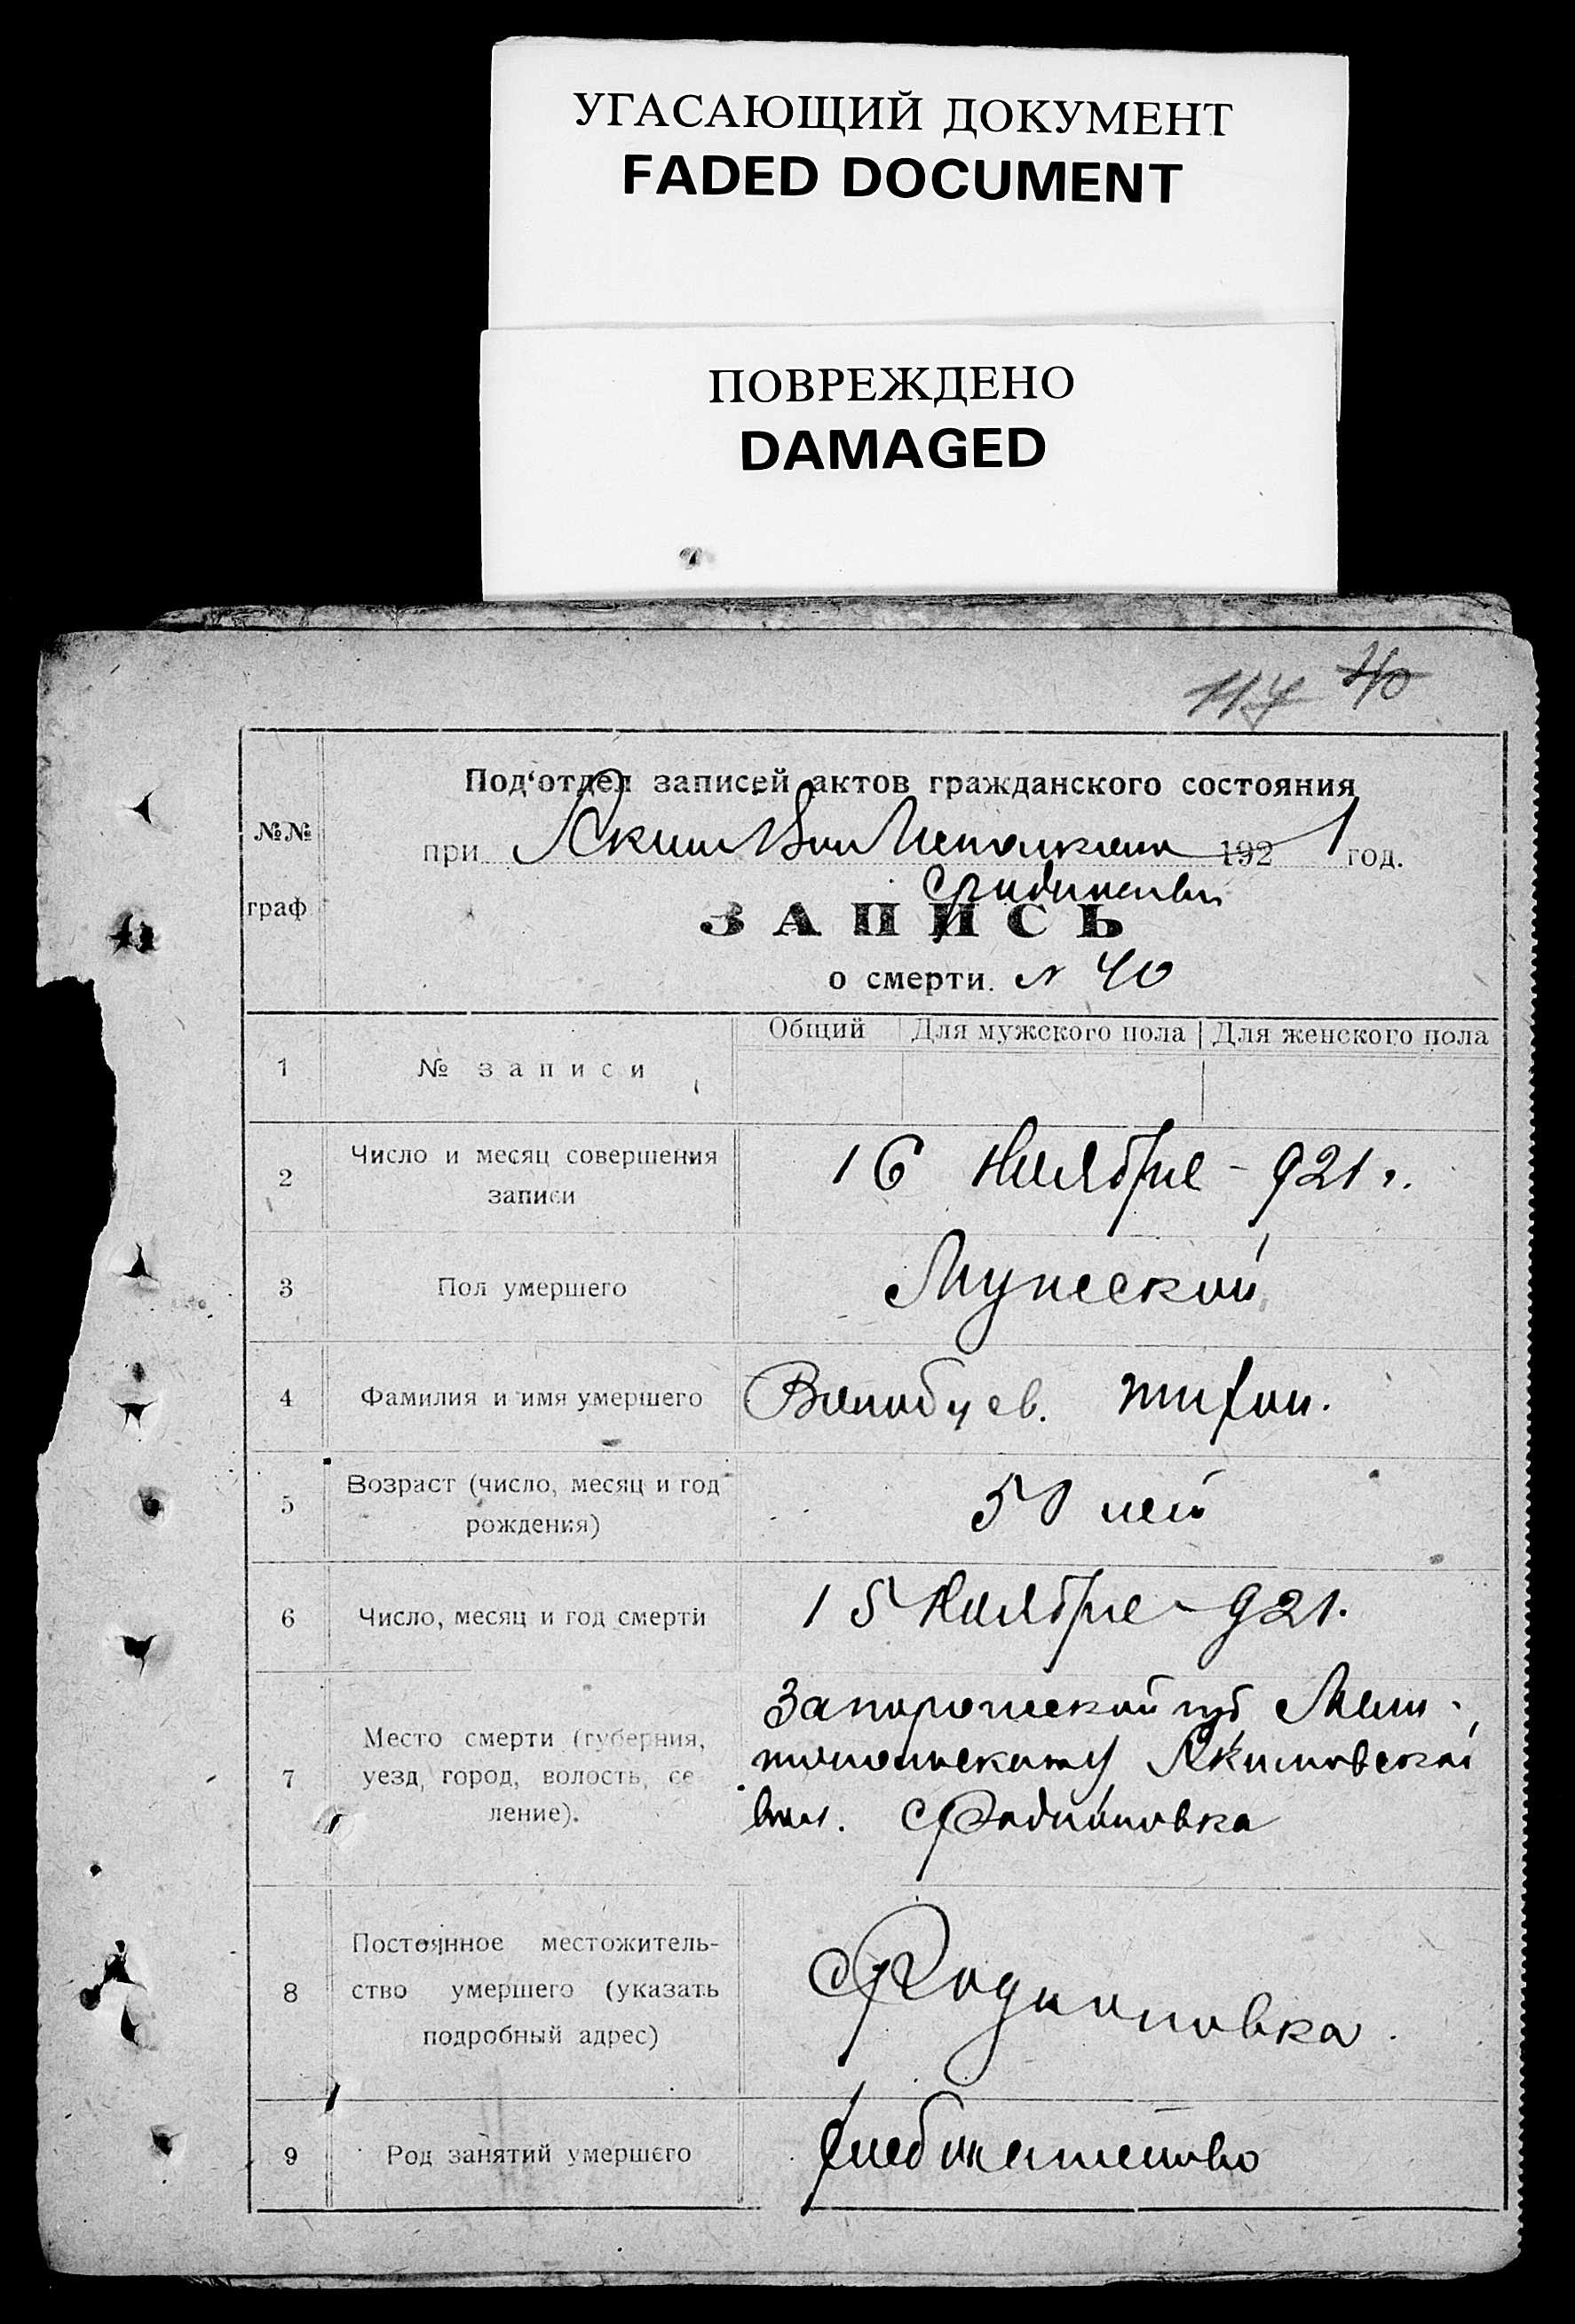 УГАСАЮЩИЙ ДОКУМЕНТ
FADED DOCUMENT
ПОВРЕЖДЕНО
DAMAGED
117 40
Под‘отдел записей актов гражданского состояния
№№ граф
при 1921 год.
ЗАПИСЬ
о смерти. N 40
Общий Для мужского пола Для женского пола
1 № записи
2 Число и месяц совершения
записи
16 Ноября - 921 г.
3 Пол умершего Мужеской
4 Фамилия и имя умершего Тихон.
5 Возраст (число, месяц и год
рождения)
50 лет
6 Число, месяц и год смерти 15 Ноября - 921.
7 Место смерти (губерния,
уезд, город, волость, се
ление).
Запорожской губ Мели-
топольскому Якимовской
вол. с Радионовка
8 Постоянное местожитель-
ство умершего (указать
подробный адрес)
с Родионовка.
9 Род занятий умершего хлебопашество